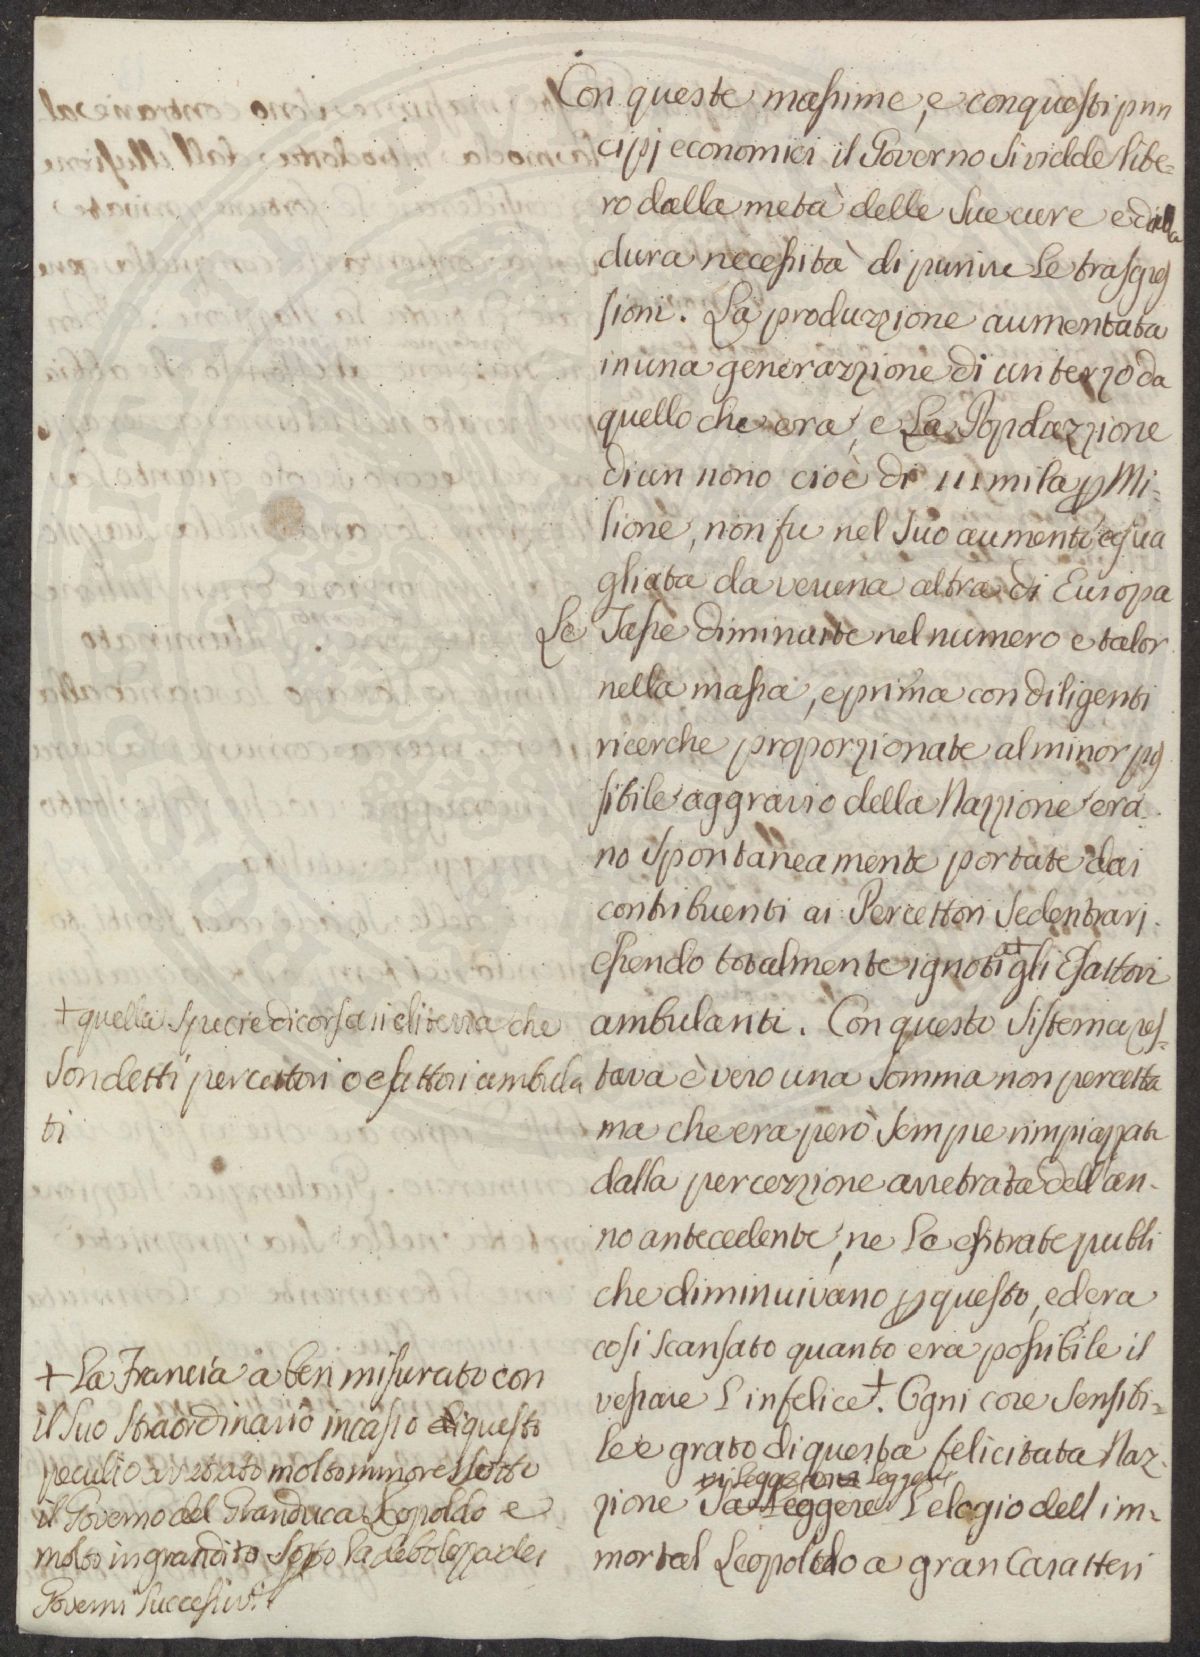 Con queste massime, e con questi prin
cipj economici il Governo si vidde libe-
ro dalla metà delle sue cure e dalla
dura necessità di punire le trasgres
sioni. La produzzione aumentata
in una generazzione di un terzo da
quello che era, e La Popolazzione
di un nono cioè di 111 mila per Mi-
lione, non fu nel suo aumento egua
gliata da veruna altra di Europa
Le Tasse diminuite nel numero e talor
nella massa, e prima con diligenti
ricerche proporzionate al minor pos
sibile aggravio della Nazzione era-
no spontaneamente portate dai
contribuenti ai Percettori Sedentarj.
essendo totalmente ignoti gli Esattori
ambulanti. Con questo Sistema res-
tava è vero una Somma non percetta
ma che era però sempre rimpiazzata
dalla percezzione arretrata dell'an-
no antecedente, ne Le entrate publi
che diminuivano per questo, ed era
cosi scansato quanto era possibile il
vessare L'infelice +. Ogni core sensibi-
le e grato di questa felicitata Naz-
leggere
zione sa Leggere L'elogio dell'im-
mortal Leopoldo a gran Caratteri
+ quella specie di corsari di terra che
son detti percettori o esattori ambula
ti
+ La Francia a ben misurato con
il suo straordinario incasso di questo
peculio arretrato molto minore sotto
il Governo del Granduca Leopoldo e
molto ingrandito sotto la debolezza dei
Governi successivi.